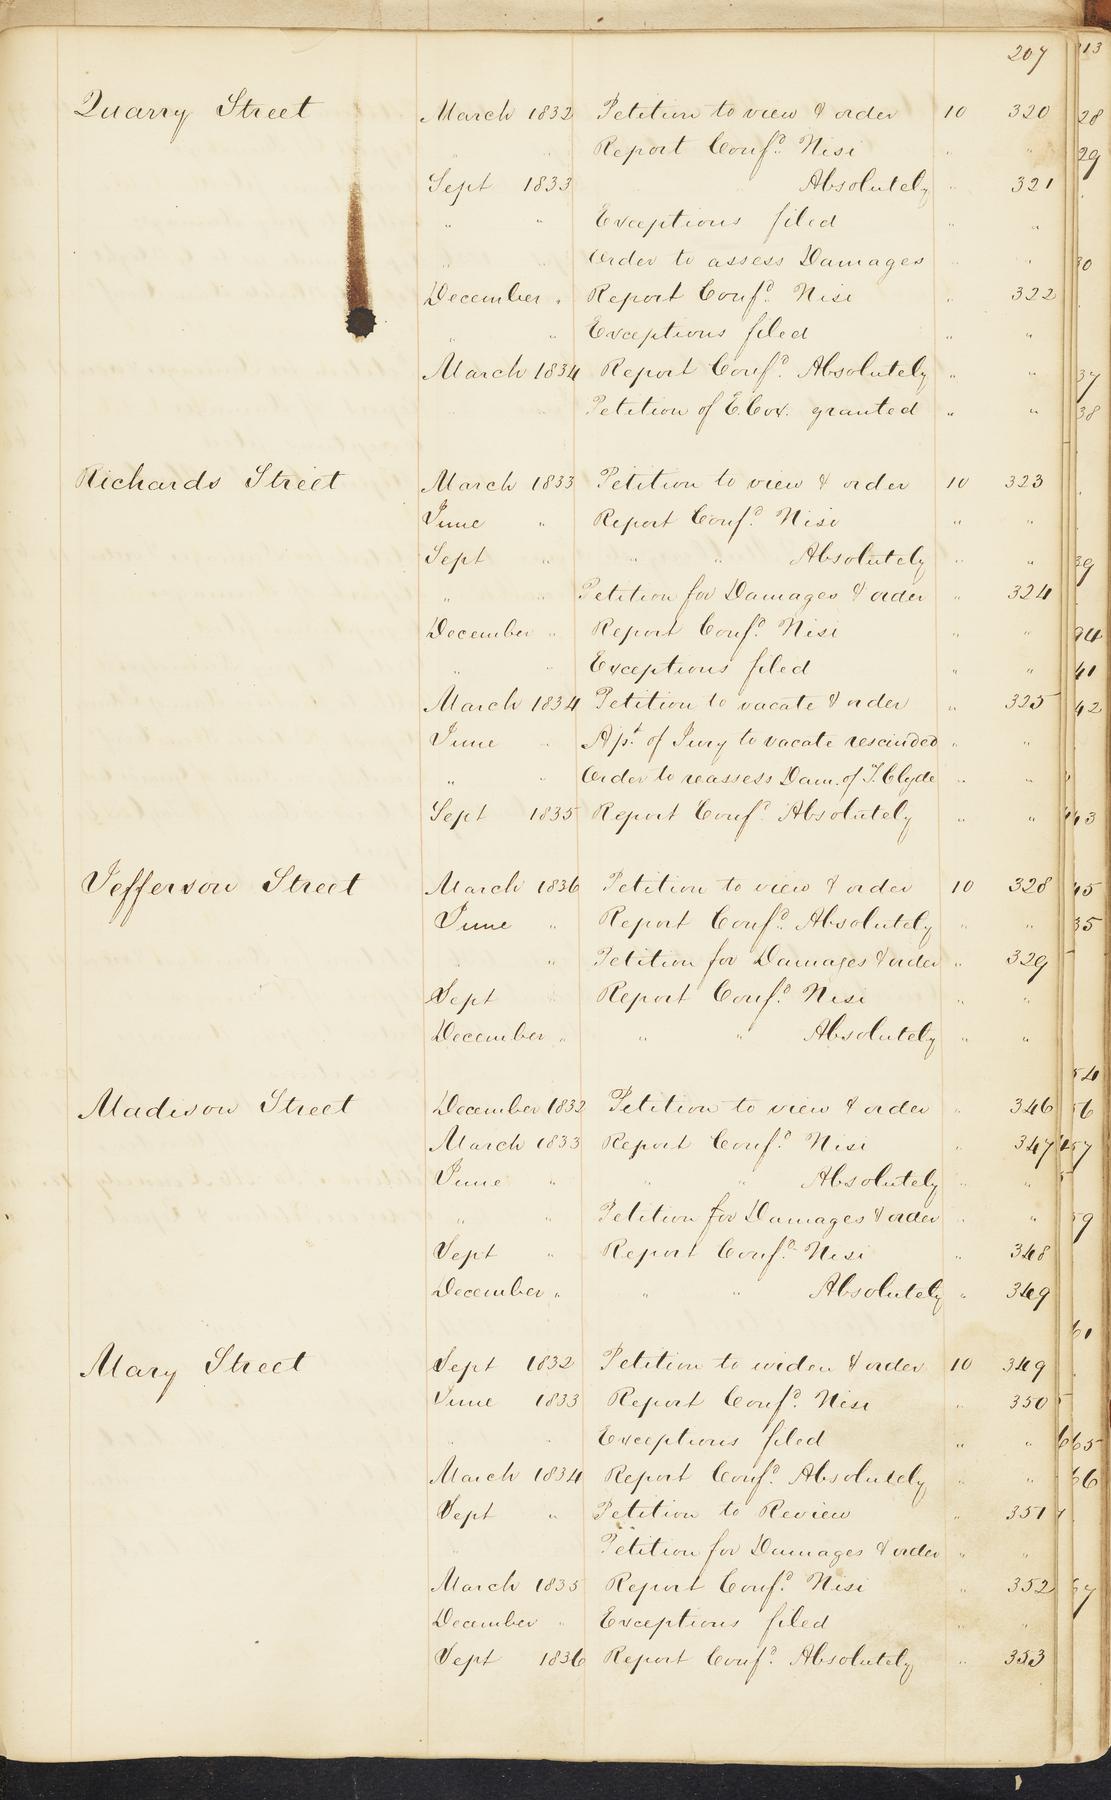 207
Quarry Street March 1832 Petition to view & order 10 320
" " Report Confd. Nisi " "
Sept 1833 " Absolutely " 321
" " Exceptions filed " "
" " Order to assess Damages " "
December " Report Confd. Nisi " 322
" " Exceptions filed " "
March 1834 Report Confd. Absolutely " "
Petition of E. Cox. granted " "
Richards Street March 1833 Petition to view & order 10 323
June " Report Confd. Nisi " "
Sept " " " Absolutely " "
" " Petition for Damages & order " 324
December " Report Confd. Nisi " "
" " Exceptions filed " "
March 1834 Petition to vacate & order " 325
June " Apt. of Jury to vacate rescinded " "
" " Order to reassess Dam. of T. Clyde " "
Sept 1835 Report Confd. Absolutely " "
Jefferson Street March 1836 Petition to view & order 10 328
June " Report Confd. Absolutely " "
" " Petition for Damages & order " 329
Sept " Report Confd. Nisi " "
December " " " Absolutely " "
Madison Street December 1832 Petition to view & order " 346
March 1833 Report Confd. Nisi " 347
June " " " Absolutely " "
" " Petition for Damages & order " "
Sept " Report Confd. Nisi " 348
December " " " Absolutely " 349
Mary Street Sept 1832 Petition to widen & order 10 349
June 1833 Report Confd. Nisi " 350
" " Exceptions filed " "
March 1834 Report Confd. Absolutely " "
Sept " Petition to Review " 351
" Petition for Damages & order " "
March 1835 Report Confd. Nisi " 352
December " Exceptions filed " "
Sept 1836 Report Confd. Absolutely " 353